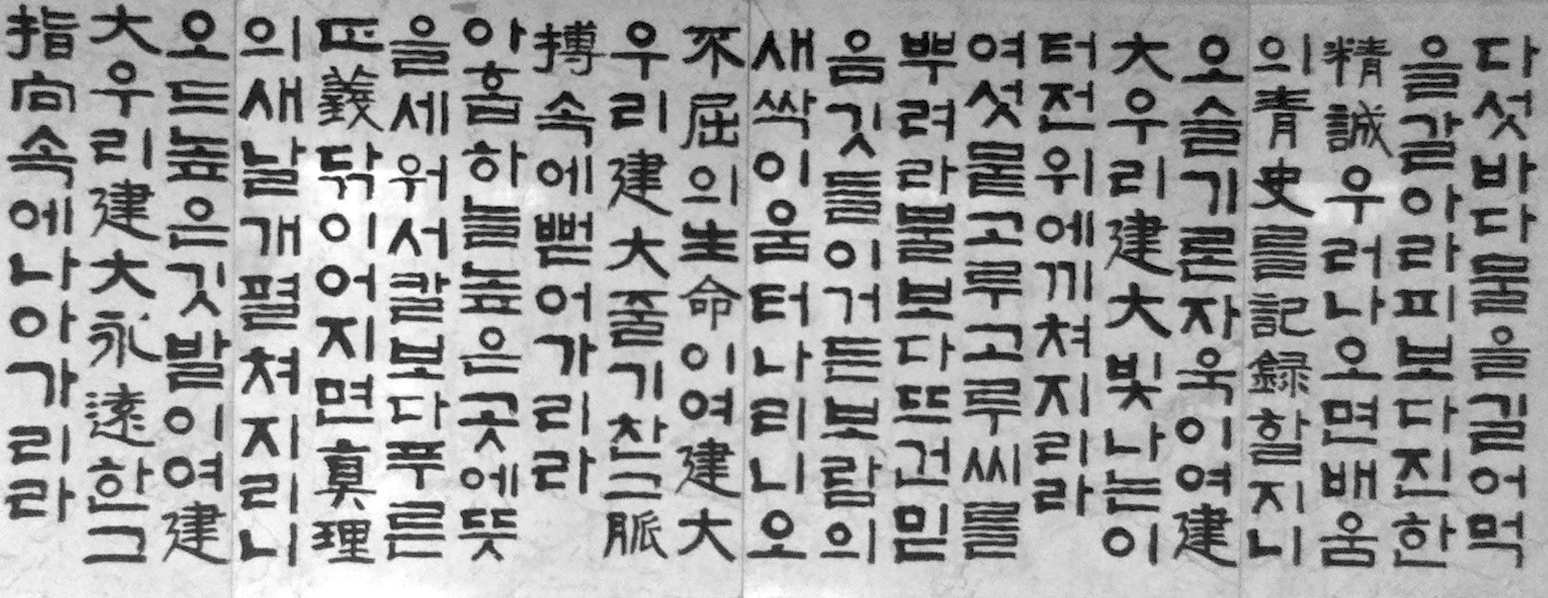 다섯바다물을길어먹
을갈아라피보다진한
精誠우러나오면배움
의青史를記録할지니
오슬기론자욱이여建
大우리建大빛나는이
터전위에끼쳐지리라
여섯뭍고루고루씨를
뿌려라불보다뜨건믿
음깃들이거든보람의
새싹이움터나리니오
不屈의生命이여建大
우리建大줄기찬그脈
搏속에뻗어가리라
아홉하늘높은곳에뜻
을세워서칼보다푸른
正義닦이어지면真理
의새날개펼쳐지리니
오드높은깃발이여建
大우리建大永遠한그
指向속에나아가리라